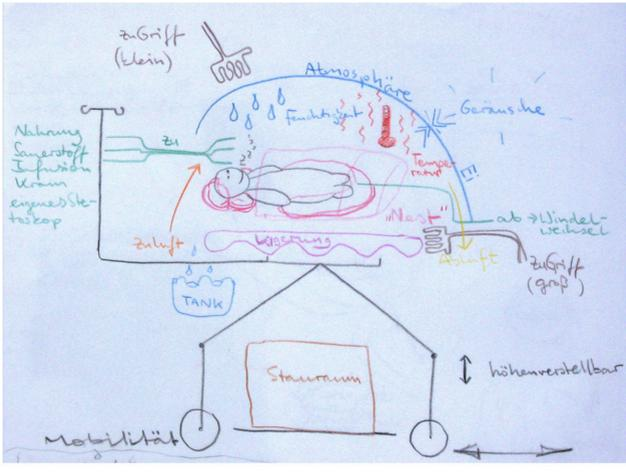 zuGriff
(klein)
Atmosphäre
Geräusche
Feuchtigkeit
Nahrung
Sauerstoff
Infusion
Kram
eigenes Ste-
toskop
zu
zzz
Tempe-
ratur
!!!
"Nest"
ab → Windel-
wechsel
Zuluft
Lagerung
Abluft
zuGriff
(groß)
TANK
Stauraum
höhenverstellbar
Mobilität